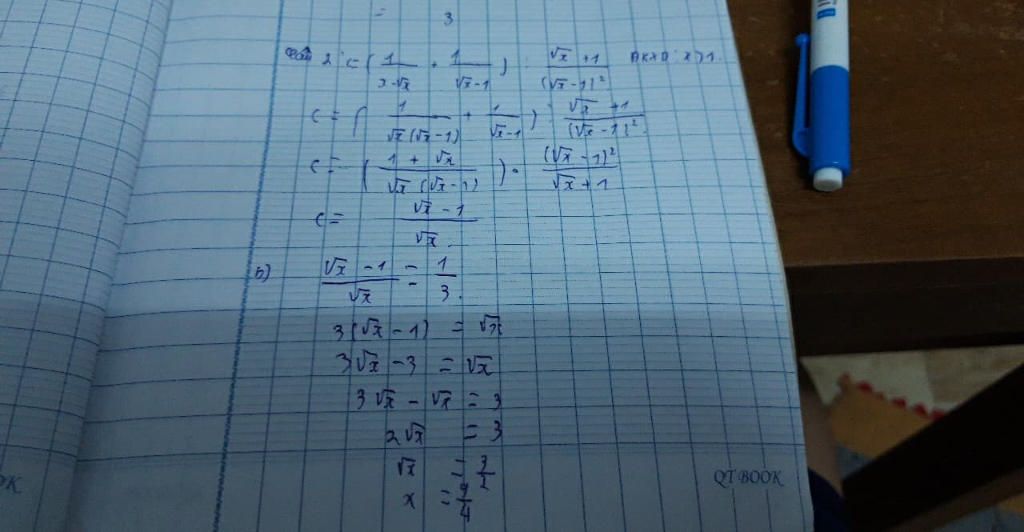 = 3
Bài 2: C = ( 1/(x-√x) + 1/(√x-1) ) : (√x+1)/(√x-1)² x>1.
C = ( 1/(√x(√x-1)) + 1/(√x-1) ) : (√x+1)/(√x-1)².
C = ( (1+√x)/(√x(√x-1)) ) · (√x-1)²/(√x+1)
C = (√x-1)/√x.
b) (√x-1)/√x = 1/3.
3(√x-1) = √x
3√x-3 = √x
3√x-√x = 3
2√x = 3
√x = 3/2
x = 9/4
QT BOOK
OK